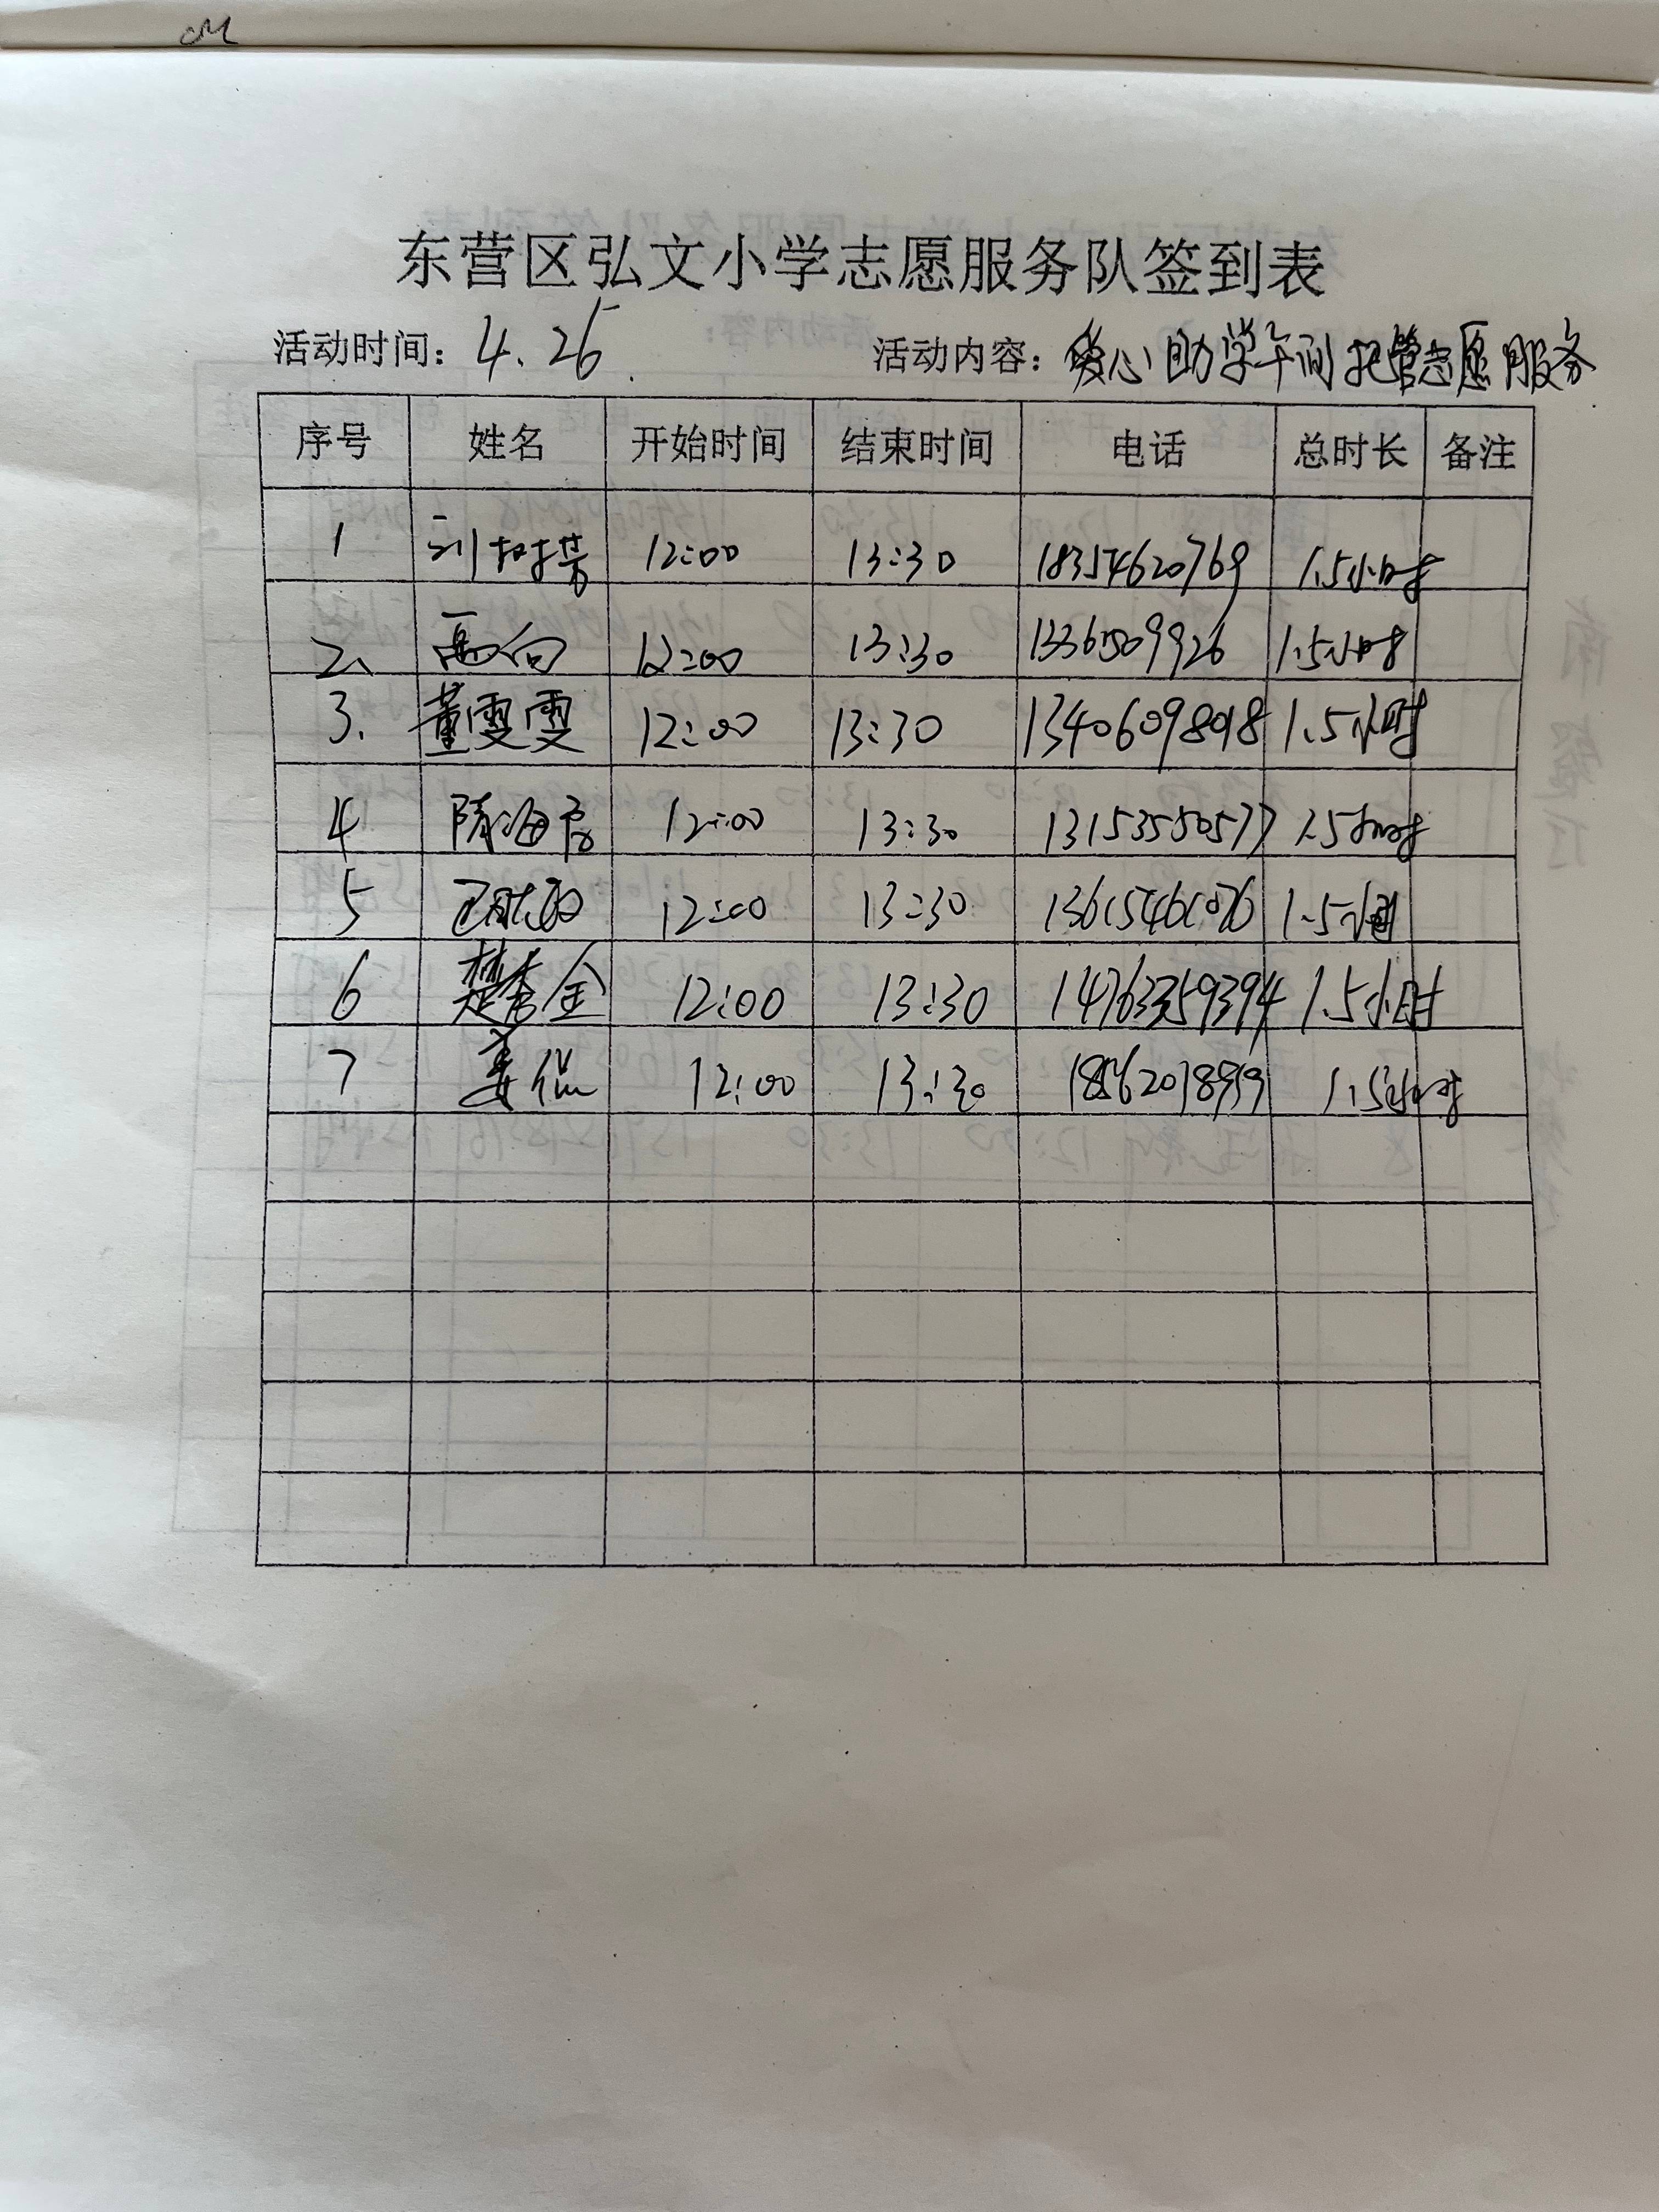 东营区弘文小学志愿服务队签到表
活动时间：4.26 活动内容：爱心助学午间托管志愿服务
序号 姓名 开始时间 结束时间 电话 总时长 备注
1 刘树芳 12:00 13:30 18354620769 1.5小时
2、 高向 12:00 13:30 1.5小时
3. 董雯雯 12:00 13:30 13406098018 1.5小时
4 隋海 12:00 13:30 13153550577 1.5小时
5 12:00 13:30 1.5小时
6 楚香金 12:00 13:30 14763359394 1.5小时
7 姜 12:00 13:30 1.5小时